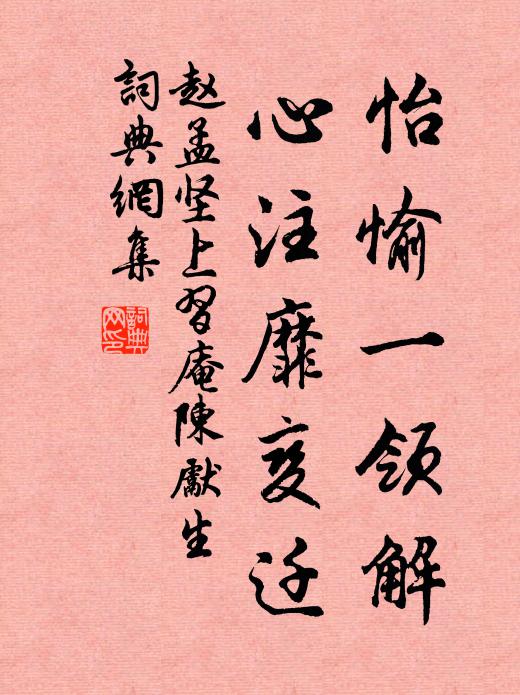 怡愉一领解
心注靡变迁
赵孟坚上习庵陈献生
詞典網集
詞典網印